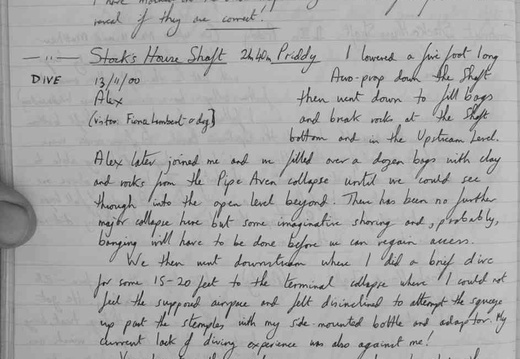 reveal if they are correct!
—"— Stock's House Shaft 2h40m Priddy I lowered a five foot long
DIVE 13/11/00 Acro-prop down the Shaft
Alex then went down to fill bags
(Visitor Fiona Lambert + dog) and break rocks at the Shaft
bottom and in the Upstream Level.
Alex later joined me and we filled over a dozen bags with clay
and rocks from the Pipe Aven collapse until we could see
through into the open level beyond. There has been no further
major collapse here but some imaginative shoring and, probably,
banging will have to be done before we can regain access.
We then went downstream where I did a brief dive
for some 15-20 feet to the terminal collapse where I could not
feel the supposed airspace and felt disinclined to attempt the squeeze
up past the stemples with my side mounted bottle and adaptor. My
current lack of diving experience was also against me!